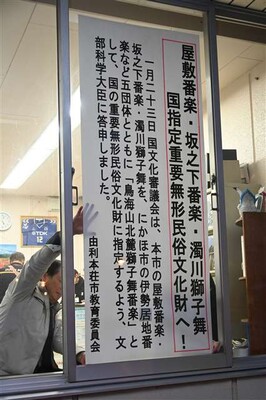 屋敷番楽・坂之下番楽・濁川獅子舞
国指定重要無形民俗文化財へ！
一月二十三日国文化審議会は、本市の屋敷番楽・
坂之下番楽・濁川獅子舞を、にかほ市の伊勢居地番
楽など五団体とともに「鳥海山北麓獅子舞番楽」と
して、国の重要無形民俗文化財に指定するよう、文
部科学大臣に答申しました。
由利本荘市教育委員会
TDK
12